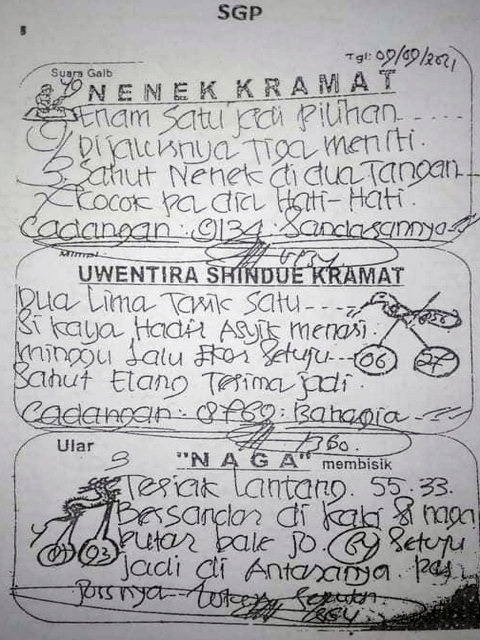 SGP
Tgl: 09/09/2021
Suara Gaib
NENEK KRAMAT
Enam Satu jadi pilihan
Dijaluknya Tiga meniti.
Sahut Nenek di dua Tangan
Cocok pa dia Hati-Hati.
Cadangan: 0134: Sandarannya
Mimpi
UWENTIRA SHINDUE KRAMAT
Dua Lima Tarik Satu
Si kaya Hadir Asyik menari.
minggu Lalu Ekor Setuju
06
Sahut Elang Terima jadi.
Cadangan: 8769: Bahagia
1360.
Ular
"NAGA" membisik
Teriak Lantang. 55.33.
Bersandar di kaki Si naga
putar balek jo. Setuju
03
jadi di Antaranya.